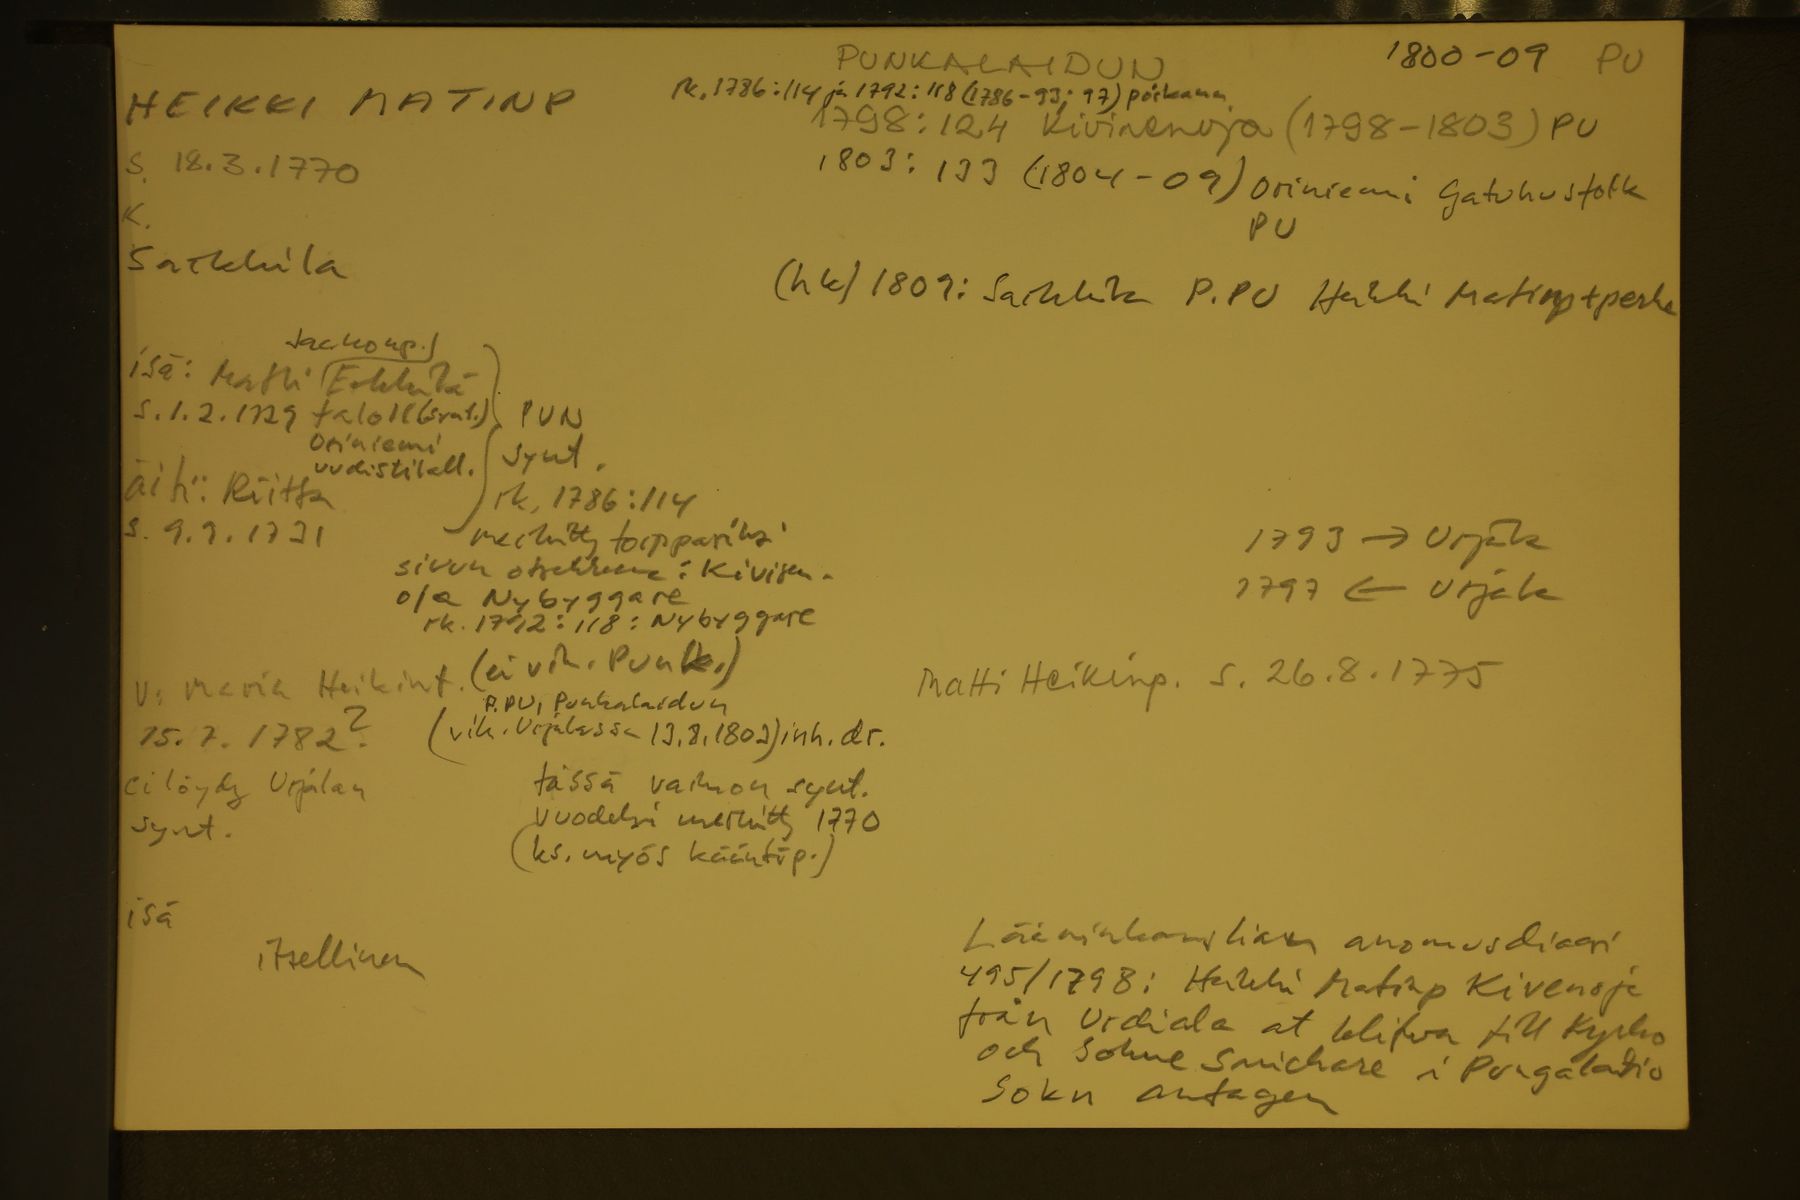 PUNKALAIDUN
1800-09 PU
HEIKKI MATINP
rk. 1786:114 ja 1792:118 (1786-93; 97) poikana
1798:124 Kivinenoja (1798-1803) PU
s. 18.3.1770
1803:133 (1804-09) Oriniemi Gatuhusfolk
PU
K.
Sarkkila
(hk) 1809: Sarkkila P.PU Heikki Matinp+perhe
Jaakonp.
isä: Matti Erkkilä
s. 1.2.1729 taloll(synt.)
PUN
Oriniemi
uudistilall.
synt.
äiti: Riitta
rk. 1786:114
s. 9.9.1731
merkitty torppariksi
1793 → Urjala
sivun otsikkona: Kivisen-
1797 ← Urjala
oja Nybyggare
rk. 1792:118: Nybyggare
(ei vih. Punk.)
v: Maria Heikint.
Matti Heikinp. s. 26.8.1775
P.PU, Punkalaidun
15.7.1782?
(vih. Urjalassa 13.8.1803) inh. dr.
ei löydy Urjalan
synt.
tässä vaimon synt.
vuodeksi merkitty 1770
(ks. myös kääntöp.)
isä
itsellinen
Lääninkanslian anomusdiaari
495/1798: Heikki Matinp Kivenoja
från Urdiala at blifwa till Kyrko
och Sokne Smickare i Pungalaitio
Sokn antagen